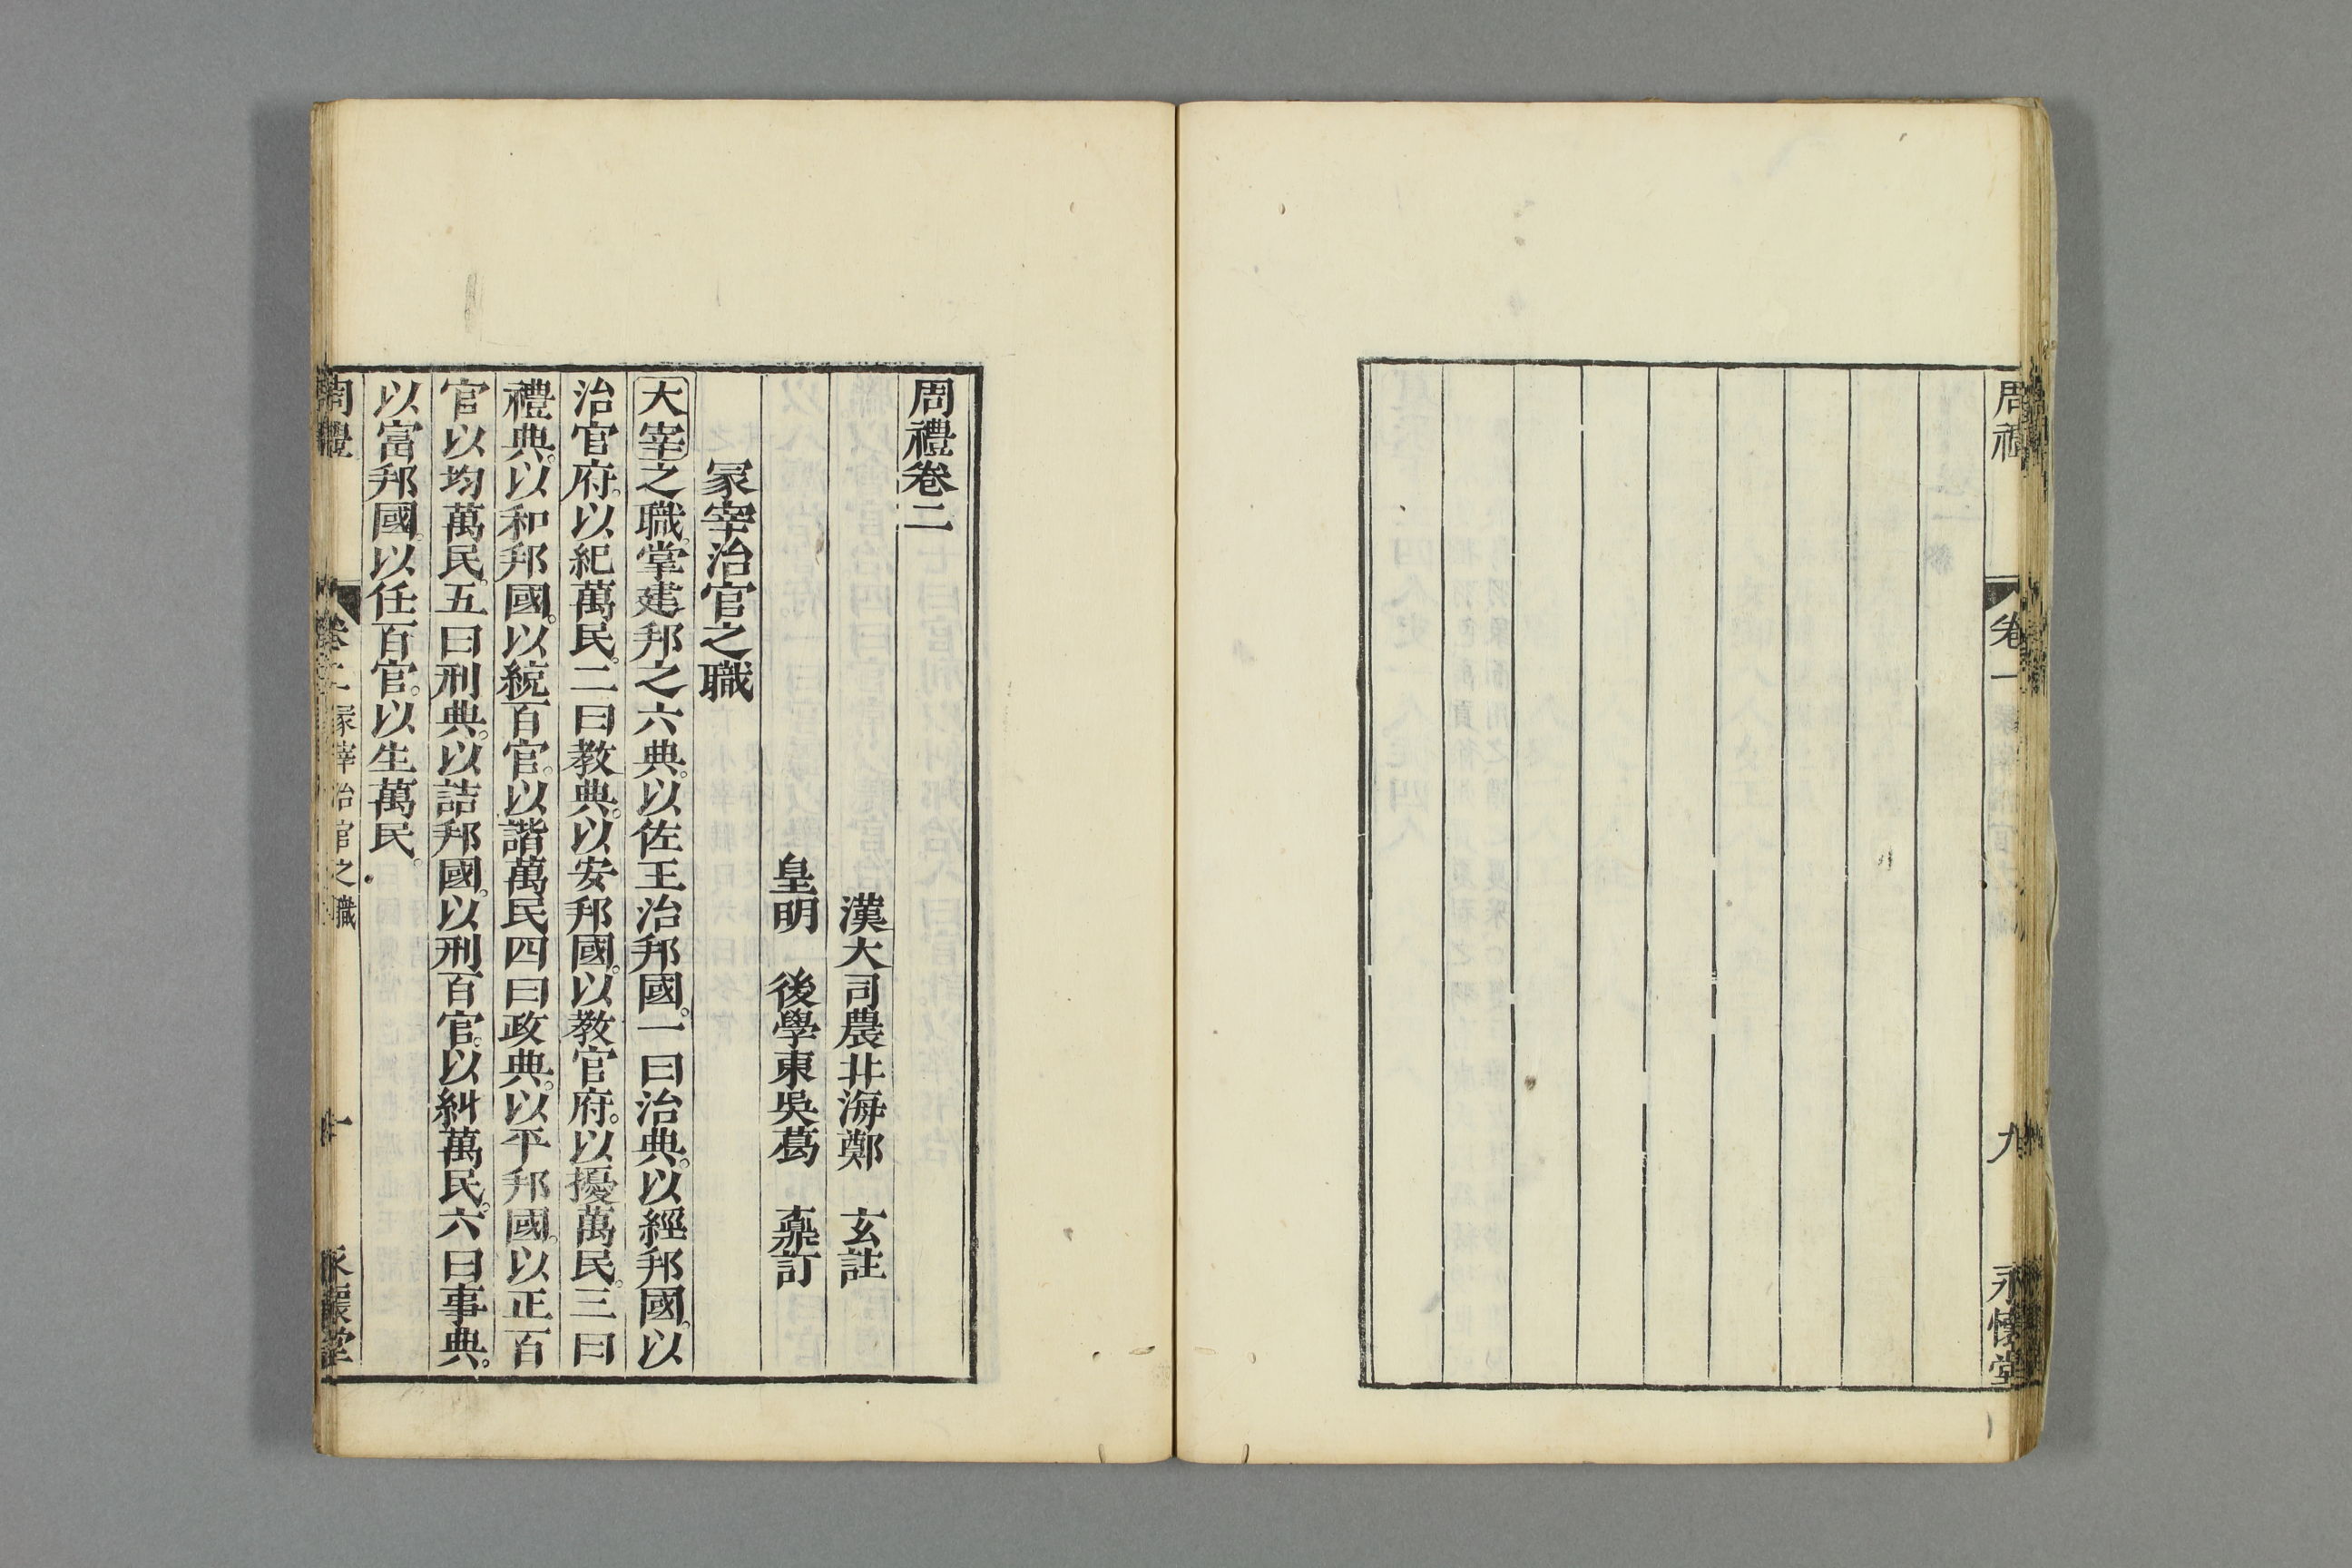 周禮
卷一
九
永懷堂
周禮卷二
漢大司農北海鄭 玄註
皇明 後學東吳葛 鼒訂
冢宰治官之職
大宰之職。掌建邦之六典。以佐王治邦國。一曰治典。以經邦國。以
治官府。以紀萬民。二曰教典。以安邦國。以教官府。以擾萬民。三曰
禮典。以和邦國。以統百官。以諧萬民四曰政典。以平邦國。以正百
官以均萬民。五曰刑典。以詰邦國。以刑百官。以糾萬民。六曰事典。
以富邦國。以任百官。以生萬民。
周禮
卷二 冢宰治官之職
永懷堂